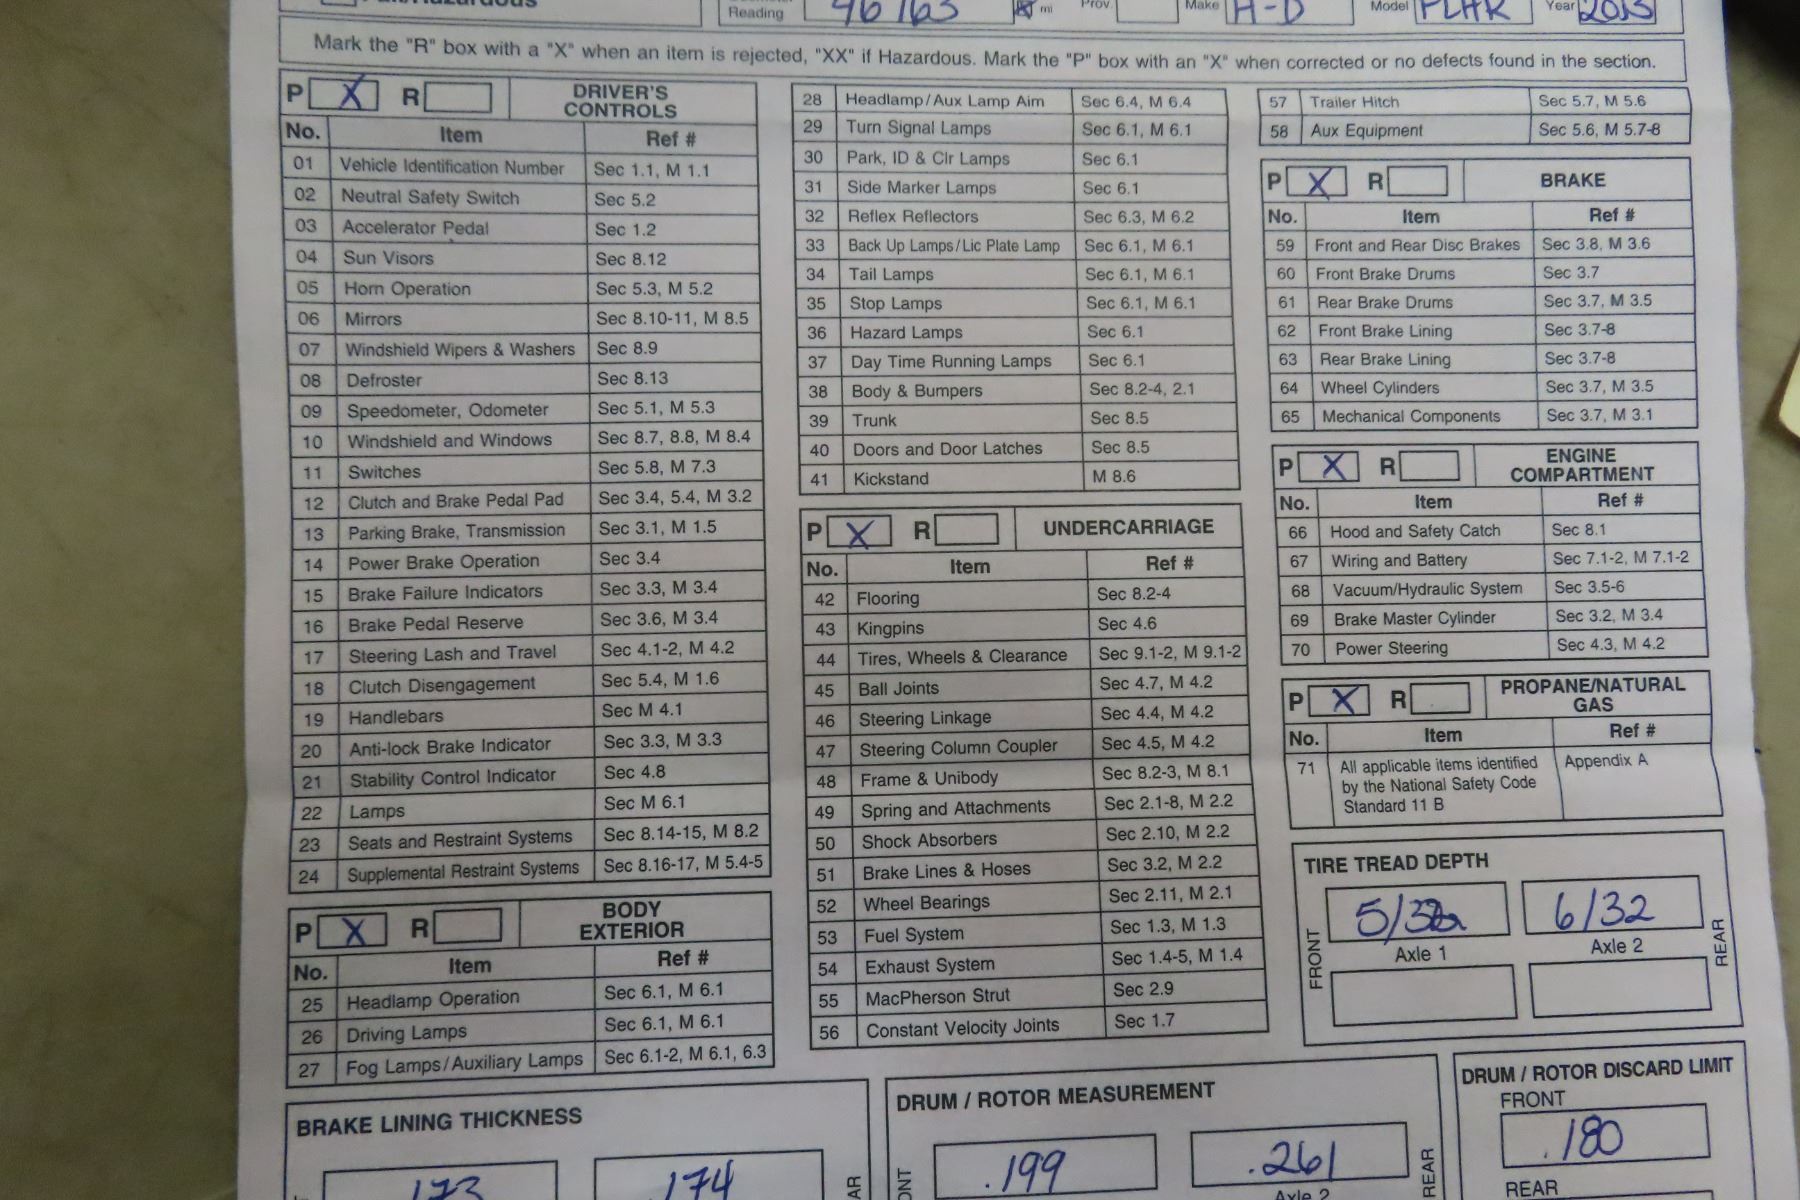 Reading 46163 mi Prov. Make H-D Model FLHR Year 2013
Mark the "R" box with a "X" when an item is rejected, "XX" if Hazardous. Mark the "P" box with an "X" when corrected or no defects found in the section.
P X R DRIVER'S CONTROLS
No. Item Ref #
01 Vehicle Identification Number Sec 1.1, M 1.1
02 Neutral Safety Switch Sec 5.2
03 Accelerator Pedal Sec 1.2
04 Sun Visors Sec 8.12
05 Horn Operation Sec 5.3, M 5.2
06 Mirrors Sec 8.10-11, M 8.5
07 Windshield Wipers & Washers Sec 8.9
08 Defroster Sec 8.13
09 Speedometer, Odometer Sec 5.1, M 5.3
10 Windshield and Windows Sec 8.7, 8.8, M 8.4
11 Switches Sec 5.8, M 7.3
12 Clutch and Brake Pedal Pad Sec 3.4, 5.4, M 3.2
13 Parking Brake, Transmission Sec 3.1, M 1.5
14 Power Brake Operation Sec 3.4
15 Brake Failure Indicators Sec 3.3, M 3.4
16 Brake Pedal Reserve Sec 3.6, M 3.4
17 Steering Lash and Travel Sec 4.1-2, M 4.2
18 Clutch Disengagement Sec 5.4, M 1.6
19 Handlebars Sec M 4.1
20 Anti-lock Brake Indicator Sec 3.3, M 3.3
21 Stability Control Indicator Sec 4.8
22 Lamps Sec M 6.1
23 Seats and Restraint Systems Sec 8.14-15, M 8.2
24 Supplemental Restraint Systems Sec 8.16-17, M 5.4-5
P X R BODY EXTERIOR
No. Item Ref #
25 Headlamp Operation Sec 6.1, M 6.1
26 Driving Lamps Sec 6.1, M 6.1
27 Fog Lamps/Auxiliary Lamps Sec 6.1-2, M 6.1, 6.3
28 Headlamp/Aux Lamp Aim Sec 6.4, M 6.4
29 Turn Signal Lamps Sec 6.1, M 6.1
30 Park, ID & Clr Lamps Sec 6.1
31 Side Marker Lamps Sec 6.1
32 Reflex Reflectors Sec 6.3, M 6.2
33 Back Up Lamps/Lic Plate Lamp Sec 6.1, M 6.1
34 Tail Lamps Sec 6.1, M 6.1
35 Stop Lamps Sec 6.1, M 6.1
36 Hazard Lamps Sec 6.1
37 Day Time Running Lamps Sec 6.1
38 Body & Bumpers Sec 8.2-4, 2.1
39 Trunk Sec 8.5
40 Doors and Door Latches Sec 8.5
41 Kickstand M 8.6
P X R UNDERCARRIAGE
No. Item Ref #
42 Flooring Sec 8.2-4
43 Kingpins Sec 4.6
44 Tires, Wheels & Clearance Sec 9.1-2, M 9.1-2
45 Ball Joints Sec 4.7, M 4.2
46 Steering Linkage Sec 4.4, M 4.2
47 Steering Column Coupler Sec 4.5, M 4.2
48 Frame & Unibody Sec 8.2-3, M 8.1
49 Spring and Attachments Sec 2.1-8, M 2.2
50 Shock Absorbers Sec 2.10, M 2.2
51 Brake Lines & Hoses Sec 3.2, M 2.2
52 Wheel Bearings Sec 2.11, M 2.1
53 Fuel System Sec 1.3, M 1.3
54 Exhaust System Sec 1.4-5, M 1.4
55 MacPherson Strut Sec 2.9
56 Constant Velocity Joints Sec 1.7
57 Trailer Hitch Sec 5.7, M 5.6
58 Aux Equipment Sec 5.6, M 5.7-8
P X R BRAKE
No. Item Ref #
59 Front and Rear Disc Brakes Sec 3.8, M 3.6
60 Front Brake Drums Sec 3.7
61 Rear Brake Drums Sec 3.7, M 3.5
62 Front Brake Lining Sec 3.7-8
63 Rear Brake Lining Sec 3.7-8
64 Wheel Cylinders Sec 3.7, M 3.5
65 Mechanical Components Sec 3.7, M 3.1
P X R ENGINE COMPARTMENT
No. Item Ref #
66 Hood and Safety Catch Sec 8.1
67 Wiring and Battery Sec 7.1-2, M 7.1-2
68 Vacuum/Hydraulic System Sec 3.5-6
69 Brake Master Cylinder Sec 3.2, M 3.4
70 Power Steering Sec 4.3, M 4.2
P X R PROPANE/NATURAL GAS
No. Item Ref #
71 All applicable items identified Appendix A
by the National Safety Code
Standard 11 B
TIRE TREAD DEPTH
FRONT 5/32 6/32 REAR
Axle 1 Axle 2
BRAKE LINING THICKNESS
.173 .174
DRUM / ROTOR MEASUREMENT
.199 .261 REAR
Axle 2
DRUM / ROTOR DISCARD LIMIT
FRONT
.180
REAR